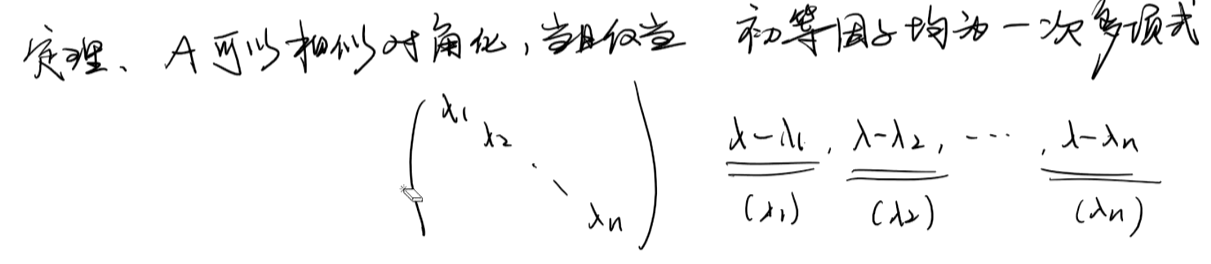 定理、A可以相似对角化，当且仅当 初等因子均为一次多项式
λ1
λ2
⋱
λn
λ-λ1, λ-λ2, ⋯, λ-λn
(λ1) (λ2) (λn)